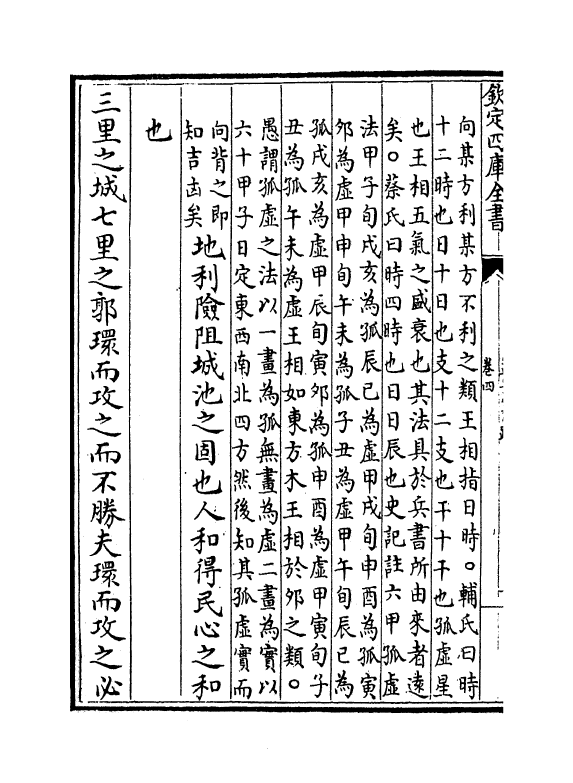 欽定四庫全書
卷四
向某方利某方不利之類王相指日時。輔氏曰時
十二時也日十日也支十二支也干十干也孤虛星
也王相五氣之盛衰也其法具於兵書所由來者遠
矣。蔡氏曰時四時也日日辰也史記註六甲孤虛
法甲子旬戌亥為孤辰巳為虛甲戌旬申酉為孤寅
夘為虛甲申旬午未為孤子丑為虛甲午旬辰巳為
孤戌亥為虛甲辰旬寅夘為孤申酉為虛甲寅旬子
丑為孤午未為虛王相如東方木王相於夘之類。
愚謂孤虛之法以一畫為孤無畫為虛二畫為實以
六十甲子日定東西南北四方然後知其孤虛實而
向背之即
知吉凶矣
地利險阻城池之固也人和得民心之和
也
三里之城七里之郭環而攻之而不勝夫環而攻之必